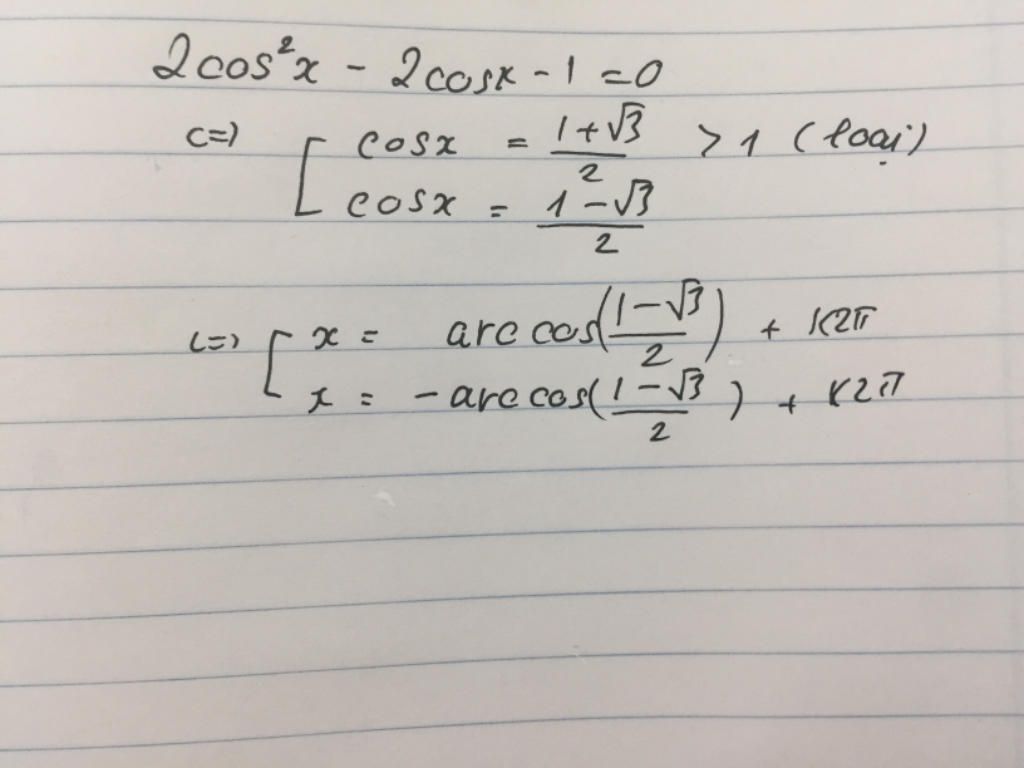 2cos²x - 2cosx - 1 = 0
<=> [ cosx = (1+√3)/2 > 1 (loại)
cosx = (1-√3)/2
<=> [ x = arccos((1-√3)/2) + k2π
x = -arccos((1-√3)/2) + k2π